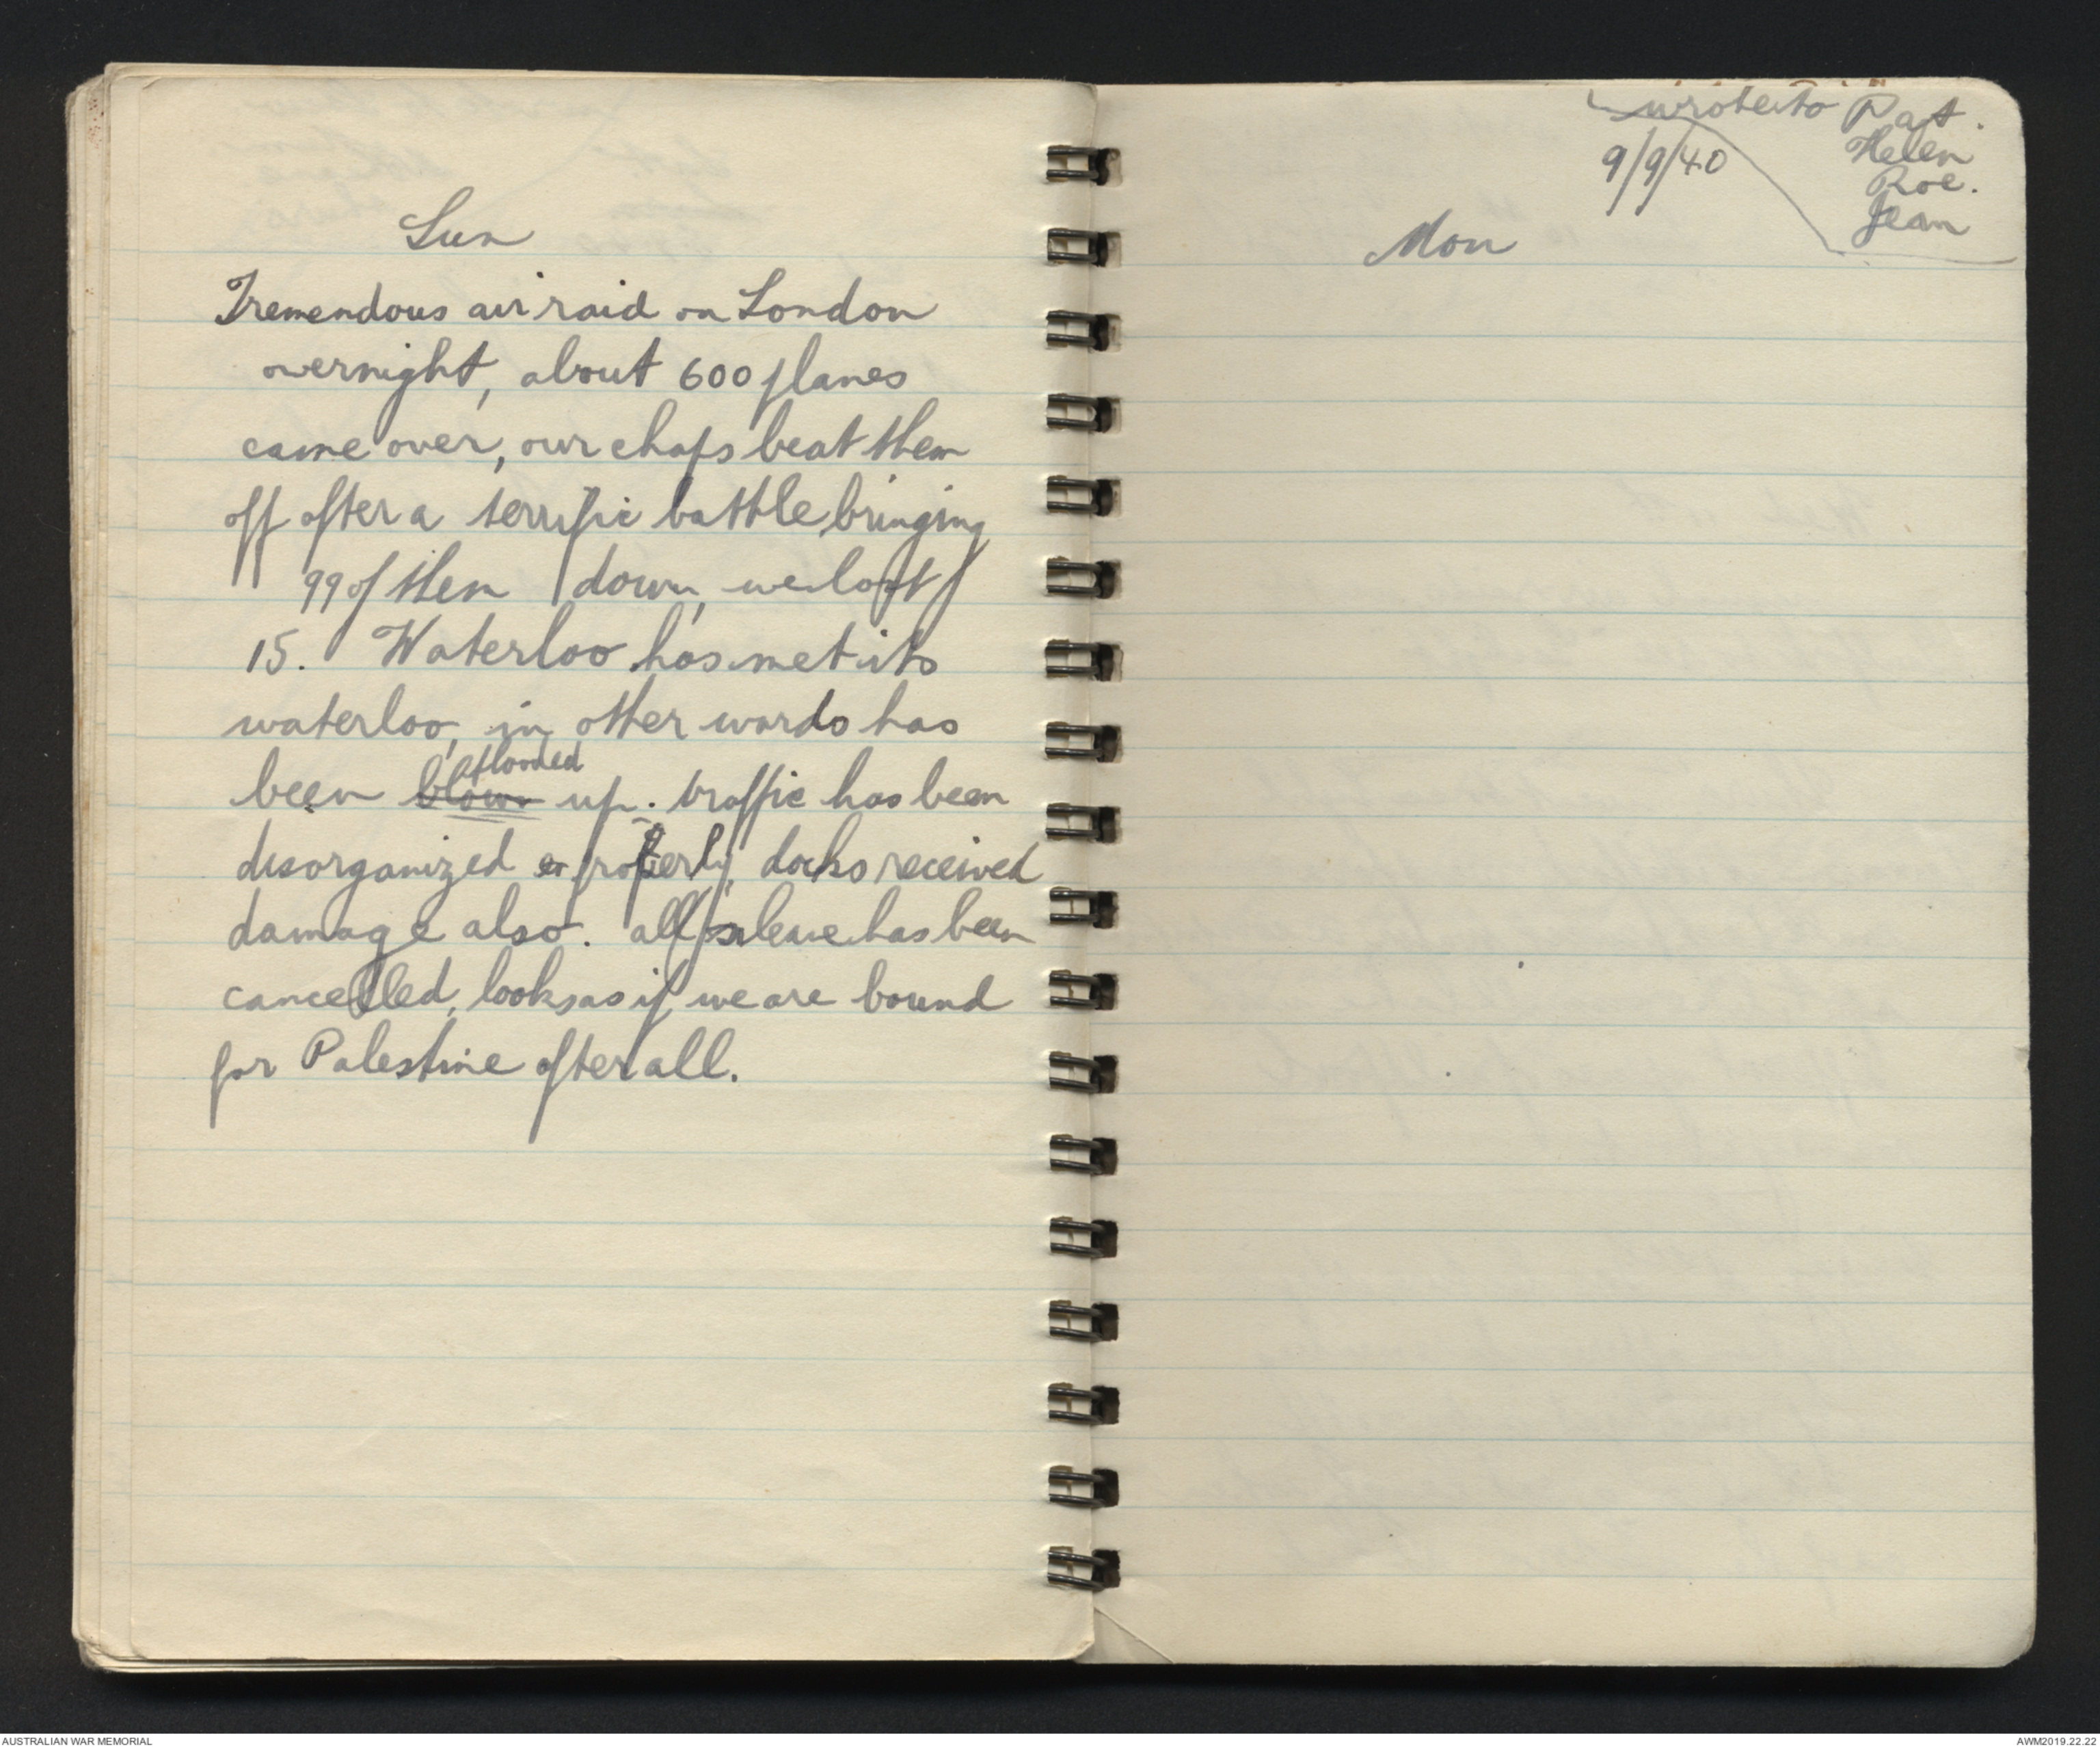 Sun
Tremendous air raid on London
overnight, about 600 planes
came over, our chaps beat them
off after a terrific battle bringing
99 of them down, we lost
15. Waterloo has met its
waterloo, in other words has
flooded
been blown up. traffic has been
disorganized properly, docks received
damage also. all leave has been
cancelled, looks as if we are bound
for Palestine after all.
wrote to Pat.
9/9/40 Helen
Roe.
Jean
Mon
AUSTRALIAN WAR MEMORIAL
AWM2019.22.22